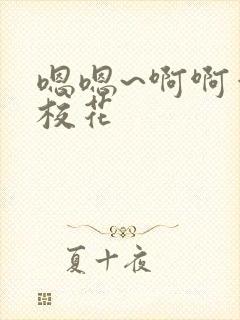 嗯嗯~啊啊
校花
夏十夜